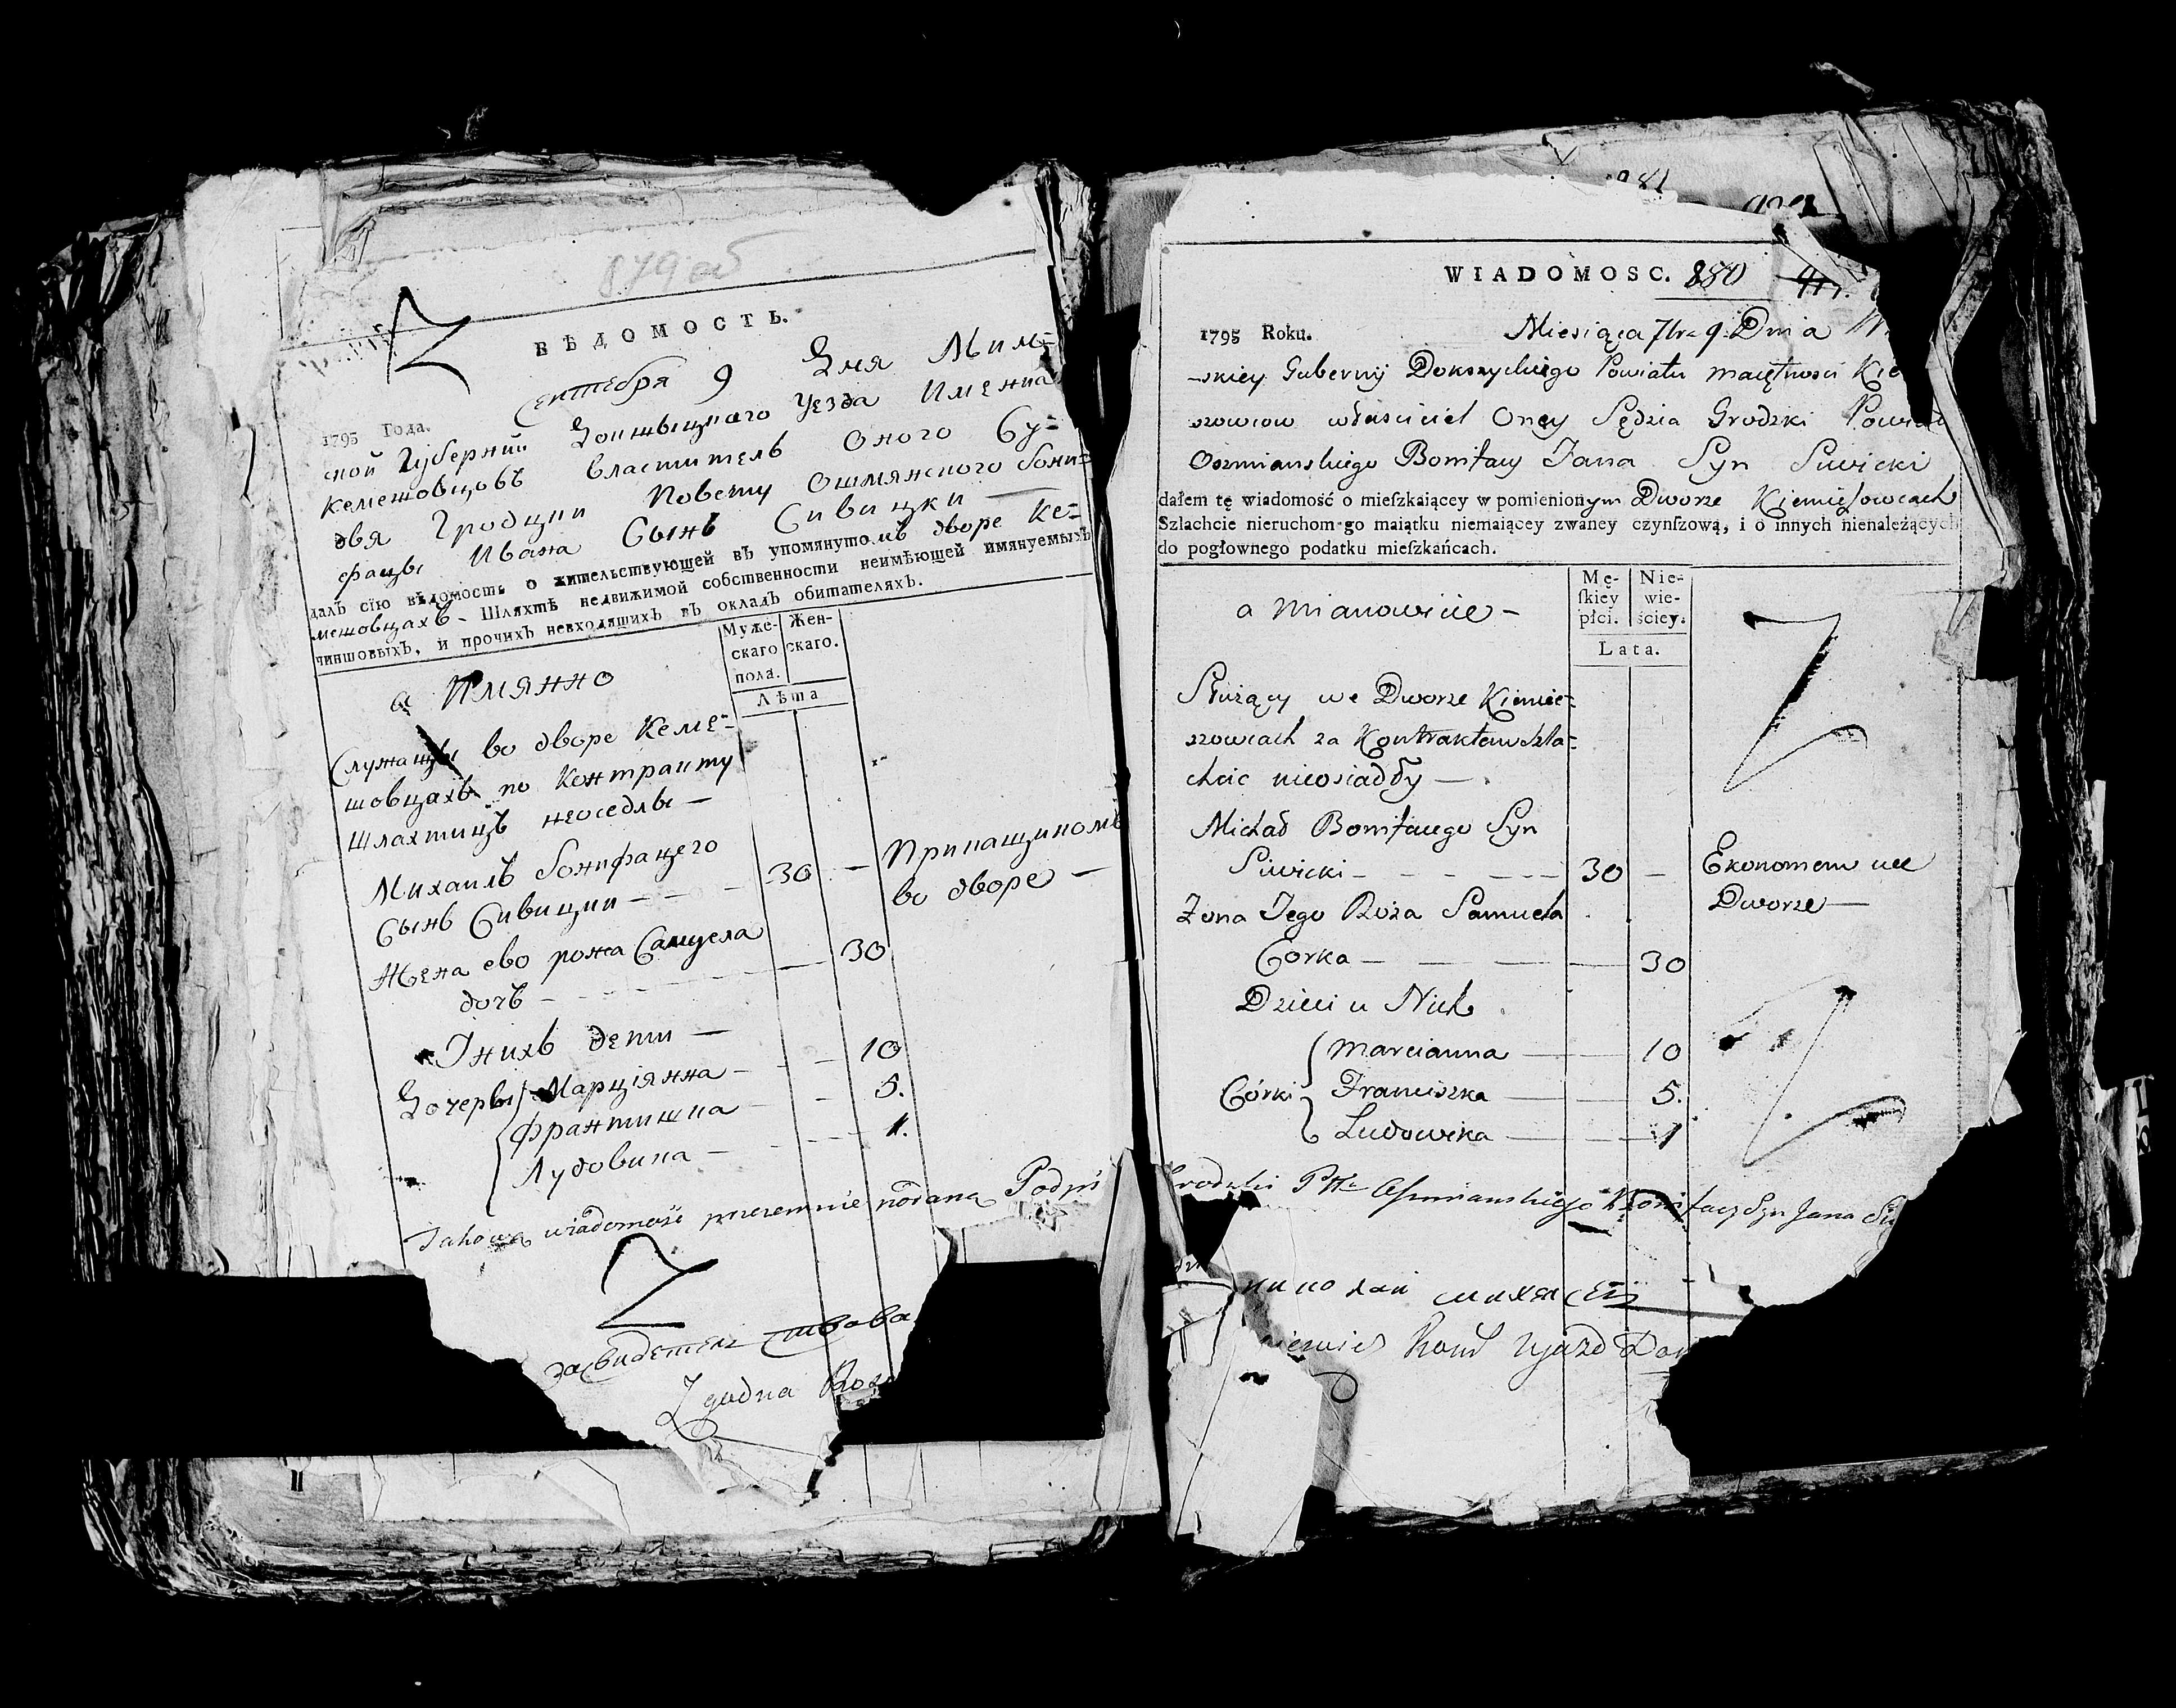 879 об
ВѢДОМОСТЬ.
1795 Года. Сентебра 9 Дня Мин=
ской Губернии Докшыцкаго Уезда Имениа
Кемешовцовъ Властитель Оного Су=
дья Гродцки Повету Ошмянского Бони=
фацы Ивана Сынъ Сивицки
далъ сїю вѣдомость о жительствующей въ упомянутомъ дворе Ке=
мешовцахъ - Шляхтѣ недвижимой собственности неимѣющей имянуемыхъ
чиншовыхъ, и прочихъ невходящихъ въ окладъ обитателяхъ.
а Имянно
Муже-скаго пола. Жен-скаго.
Лѣта
Служащы во дворе Кеме=
шовцахъ по Контракту
Шляхтицъ неоседлы —
Михаилъ Бонифацего
Сынъ Сивицки - - - 30 — Приказчикомъ
во дворе —
Жена ево рожа Самуела
дочь - - - — 30
Унихъ дети —
Дочеры Марцїянна - - 10
Франтишка - - 5.
Лудовика - - 1.
Takowa wiadomość przezemnie podana Podpi
засвидетел ствова
Zgodna
981
WIADOMOSC. 880
1795 Roku. Miesiąca 7bra 9 Dnia
-skiey Gubernij Dokszyckiego Powiatu maiętnosci Kie
szowcow własciciel Oney Sędzia Grodzki Powiat
Oszmianskiego Bonifacy Jana Syn Siwicki
dałem tę wiadomość o mieſzkaiącey w pomienionym Dworze Kiemieszowcach
Szlachcie nieruchom go maiątku niemaiącey zwaney czynſzową, i o innych nienależących
do pogłownego podatku mieſzkańcach.
a mianowicie -
Mę-ſkiey płci. Nie-wie-ściey.
Lata.
Służący we Dworze Kiemie=
szowcach za Kontraktem szla=
chcic nieosiadły —
Michał Bonifacego Syn
Siwicki - - - - 30 — Ekonomem we
Dworze —
Zona Jego Roża Samuela
Corka — — 30
Dzieci u Nich
Marcianna — 10
Córki Franciszka — 5.
Ludowika — 1
Grodzki Ptu Oszmianskiego Bonifacy Syn Jana Si
николай
Ujazd